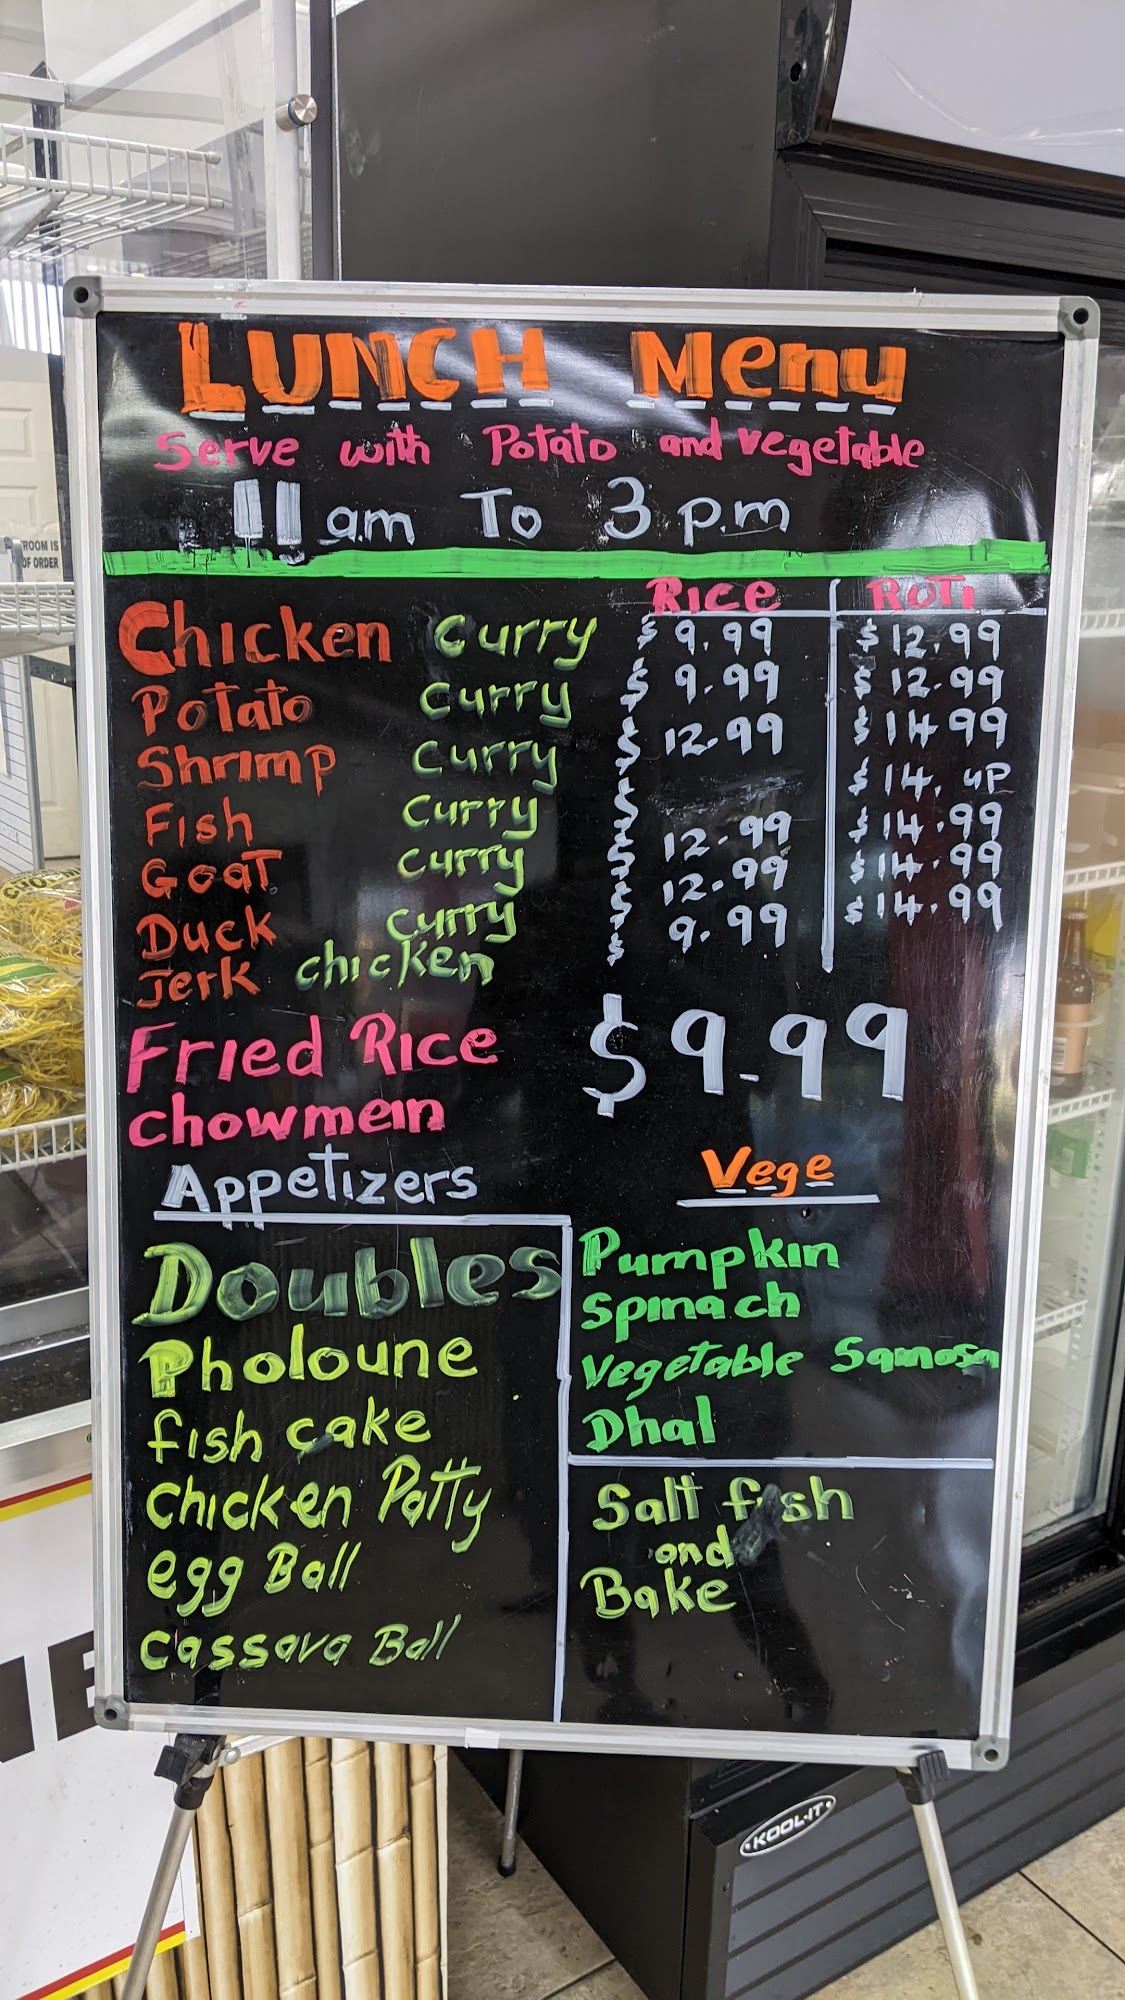 LUNCH Menu
Serve with Potato and vegetable
11 a.m To 3 p.m
Rice Roti
Chicken Curry $ 9.99 $ 12.99
Potato Curry $ 9.99 $ 12.99
Shrimp Curry $ 12.99 $ 14.99
Fish Curry $ $ 14. up
Goat Curry $ 12.99 $ 14.99
Duck Curry $ 12.99 $ 14.99
Jerk chicken $ 9.99 $ 14.99
Fried Rice $9.99
chowmein
Appetizers
Doubles
Pholoune
fish cake
chicken Patty
egg Ball
cassava Ball
Vege
Pumpkin
Spinach
Vegetable Samosa
Dhal
Salt fish
and
Bake
ROOM IS
OF ORDER
KOOL-IT